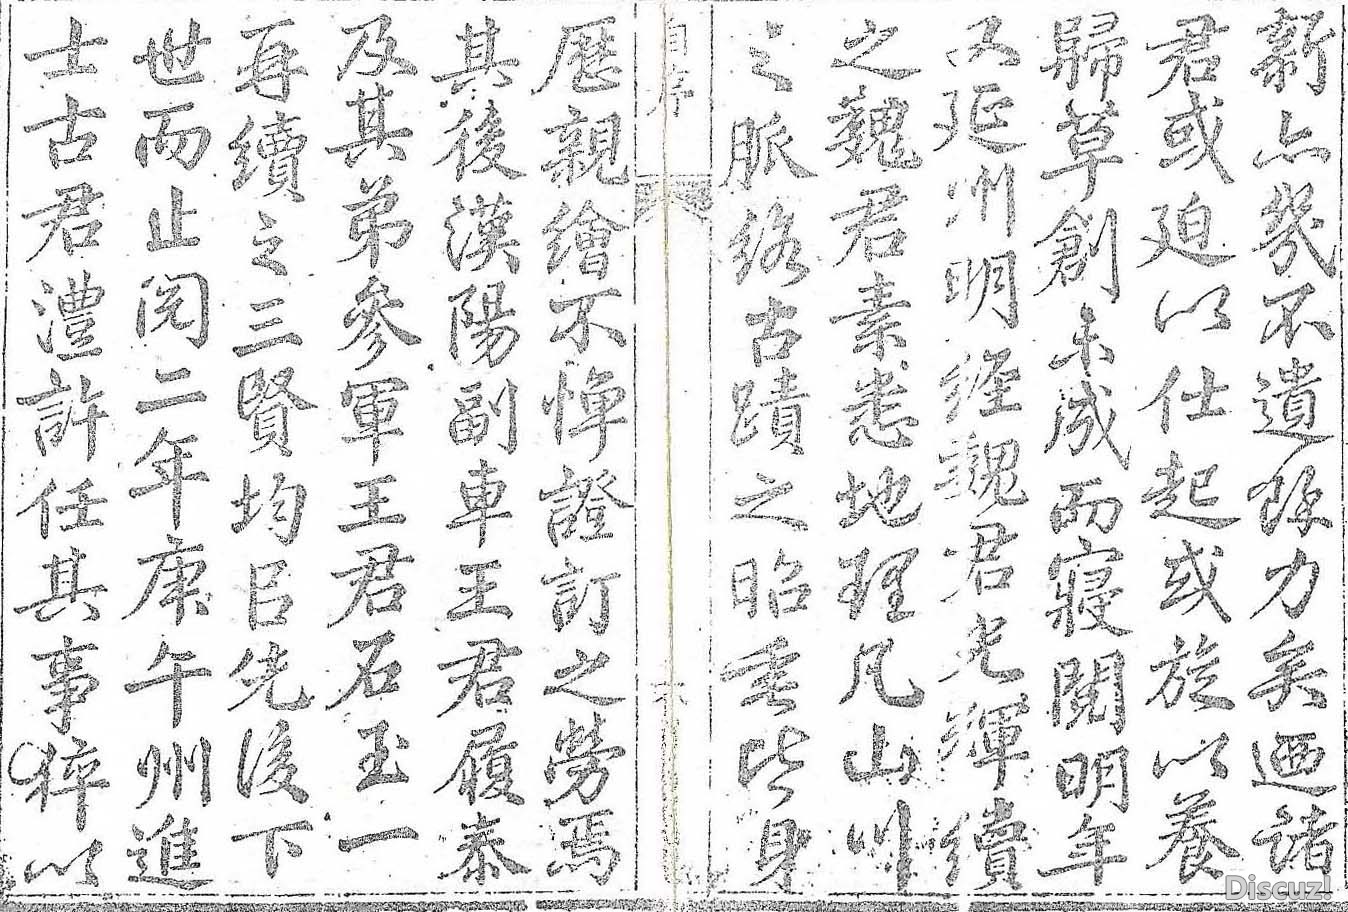 新亦幾不遺餘力矣迺諸
君或迫以仕起或旋以養
歸草創未成而寢閱明年
又延州明經魏君光渾續
之魏君素悉地理凡山川
之脈絡古蹟之昭垂皆身
自序
歷親繪不憚證訂之勞焉
其後漢陽副車王君履泰
及其弟參軍王君石玉一
再續之三賢均臣先後下
世而止閱二年庚午州進
士古君澧許任其事猝以
Discuz!